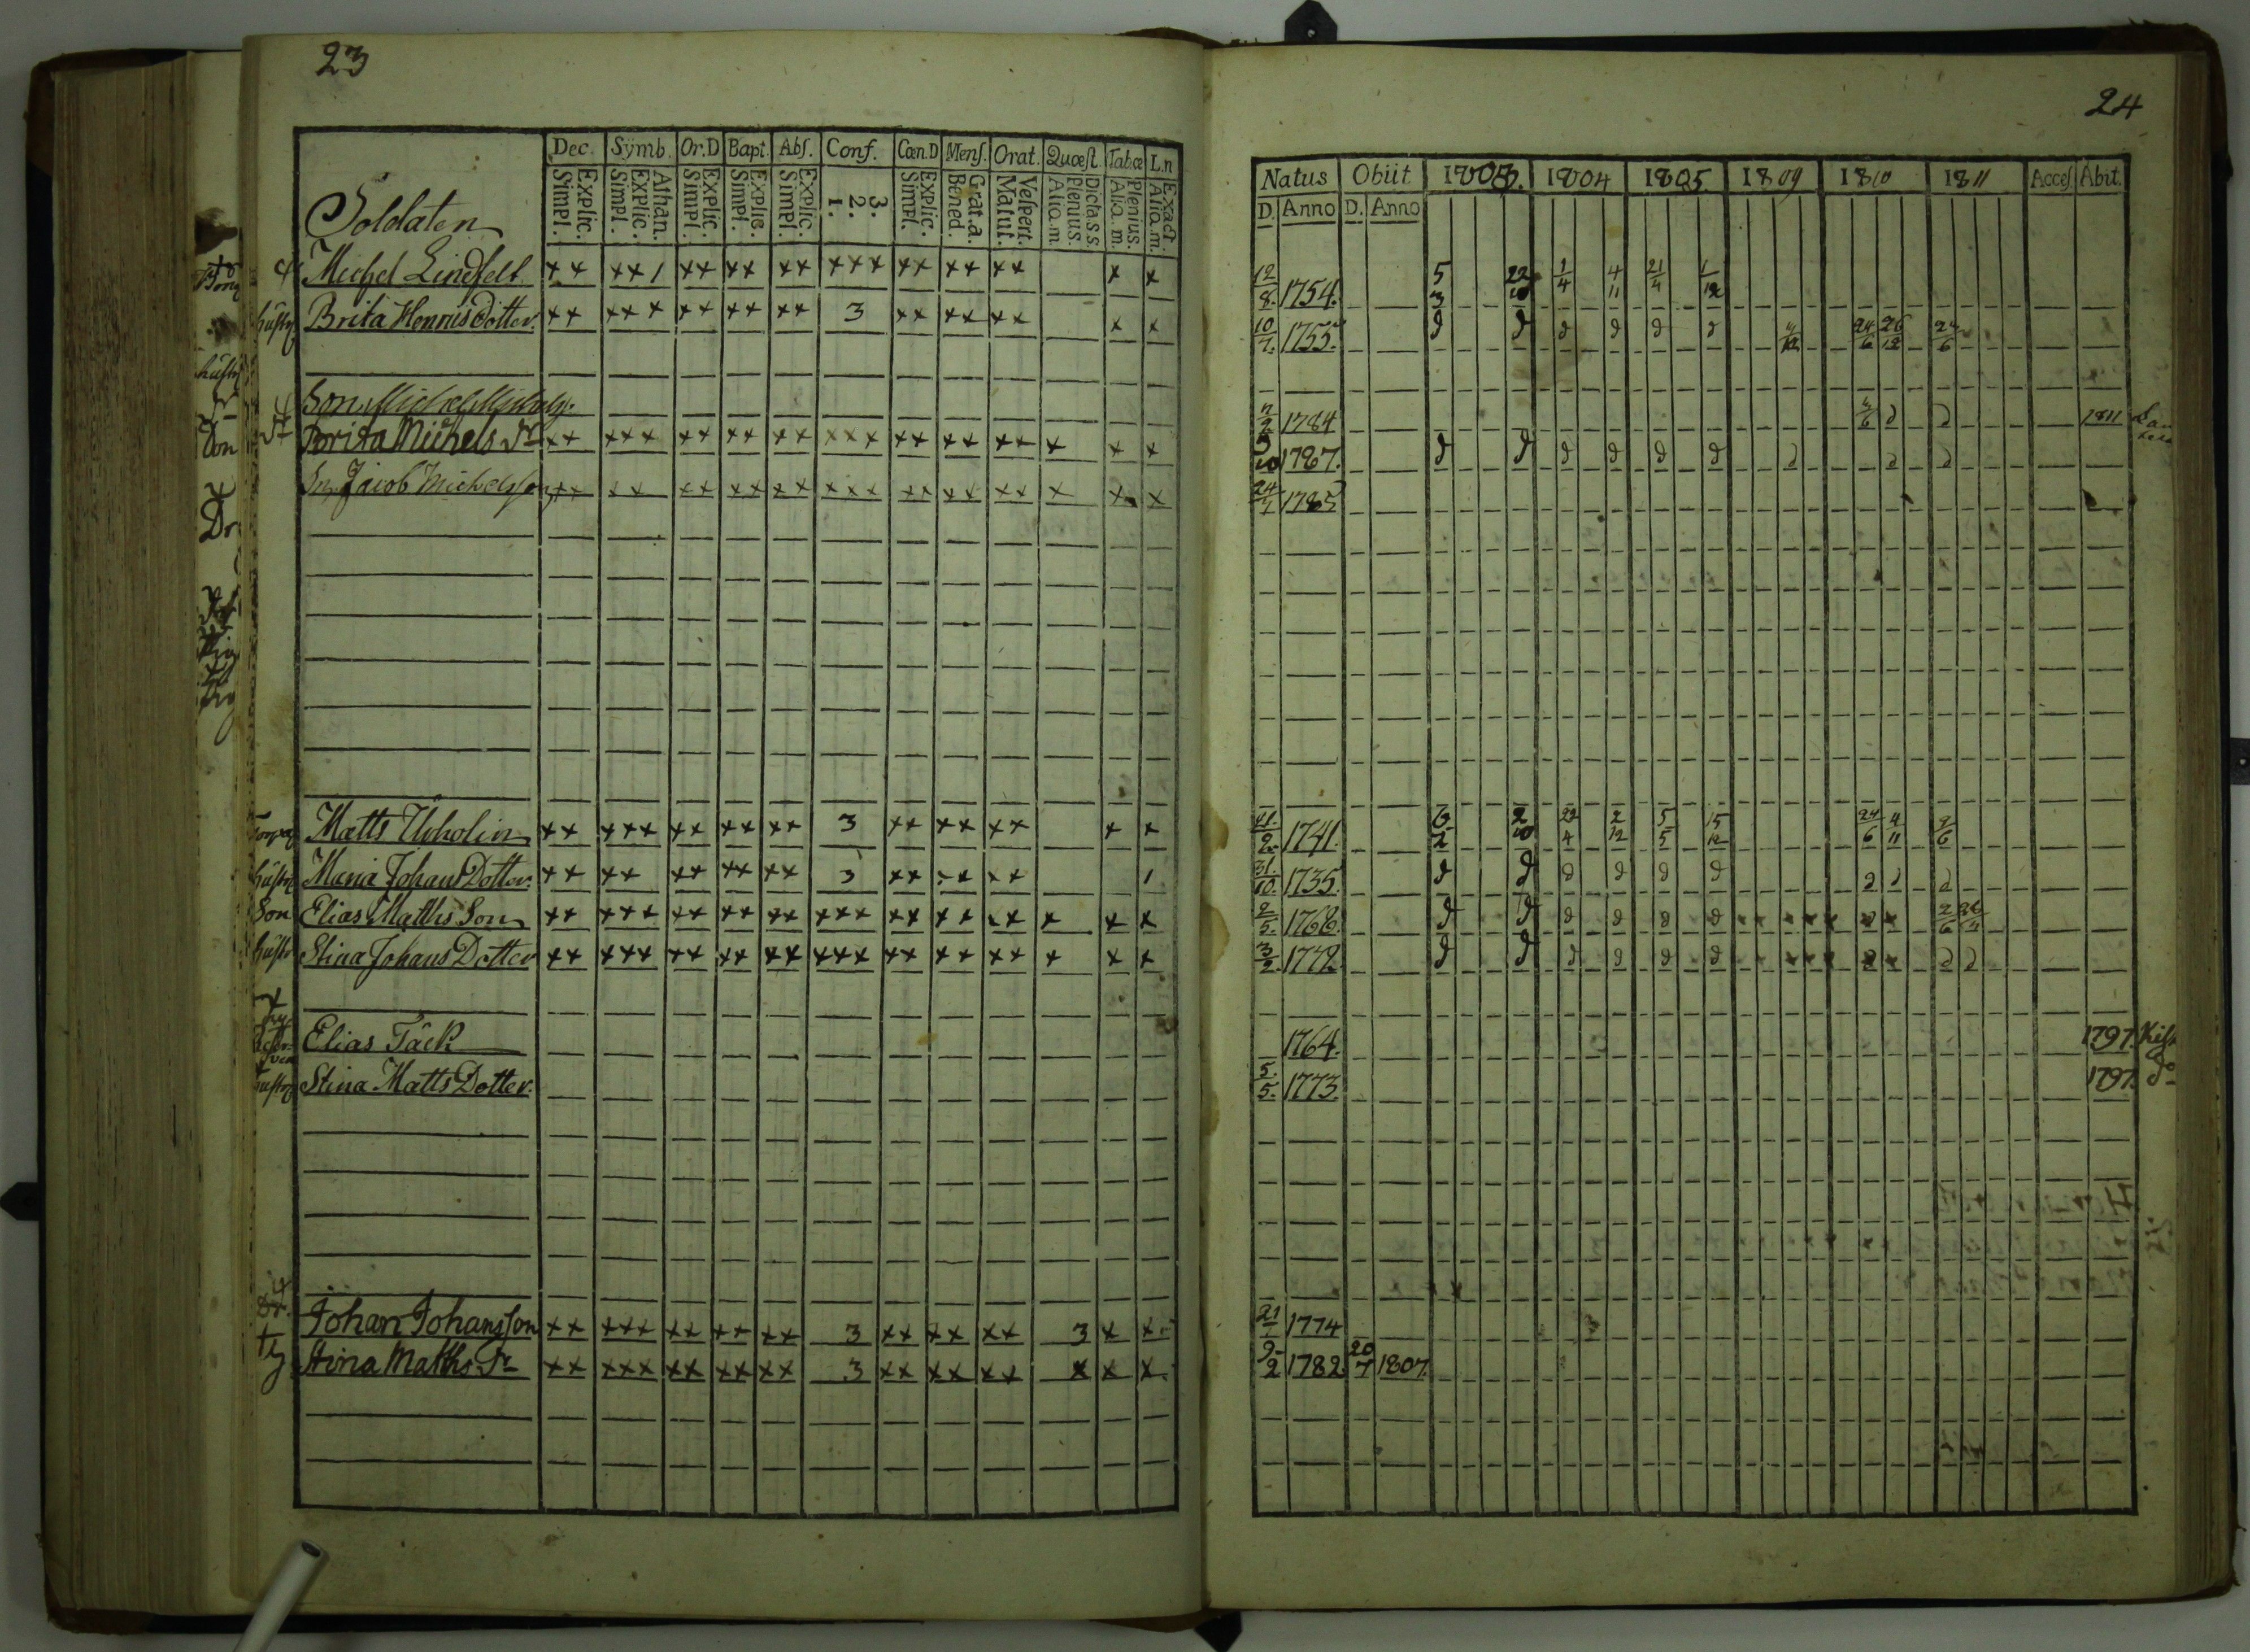 23
Dec. Symb. Or.D Bapt. Abſ. Conf. Cœn.D Menſ. Orat. Quœſt. Tab.œ L.n
Explic. Simpl. Athan. Explic. Simpl. Explic. Simpl. Explic. Simpl. Explic. Simpl. 3. 2. 1. Explic. Simpl. Grat.a. Bened. Veſpert. Matut. Dicta s.s. Plenius. Aliq.m. Plenius. Aliq.m. Exact. Aliq.m.
Soldaten
Michel Lindfelt ×× ××/ ×× ×× ×× ××× ×× ×× ×× × ×
hustr Brita Henrics Dotter. ×× ××× ×× ×× ×× 3 ×× ×× ×× × ×
Son Michel Michelss.
Dr Brita Michels Dr ×× ××× ×× ×× ×× ××× ×× ×× ×× × × ×
Sn Jacob Michelsson ×× ×× ×× ×× ×× ××× ×× ×× ×× × × ×
Matts Upholin ×× ××× ×× ×× ×× 3 ×× ×× ×× × ×
hustr Maria Johans Dotter. ×× ×× ×× ×× ×× 3 ×× ×× ×× /
Son Elias Matths Son ×× ××× ×× ×× ×× ××× ×× ×× ×× × × ×
hustr Stina Johans Dotter ×× ××× ×× ×× ×× ××× ×× ×× ×× × × ×
Elias Täck
hustr Stina Matts Dotter.
Johan Johansson ×× ××× ×× ×× ×× 3 ×× ×× ×× 3 × ×
Stina Matths Dr ×× ××× ×× ×× ×× 3 ×× ×× ×× × × ×
24
Natus Obiit 1803. 1804 1805. 1809 1810 1811 Acceſ. Abit.
D. Anno D. Anno
12/8. 1754. 5/3 22/10 1/4 4/11 21/4 1/12
10/7. 1755. d d d d d d 4/12 24/6 26/12 24/6
7/2 1784 4/6 d d 1811
5/10 1787. d d d d d d d d d
24/7 1785
21./9. 1741. 6/2 2/10 22/4 2/12 5/5 15/12 24/6 4/11 9/6
31./10. 1735. d d d d d d d d d
2/5. 1766. d d d d d d × × × × × × × 2/6 26/11
3/2. 1772. d d d d d d × × × × × × d d
1764. 1797.
5./5. 1773. 1797. do
21/1 1774
9/2 1782 20/7 1807.